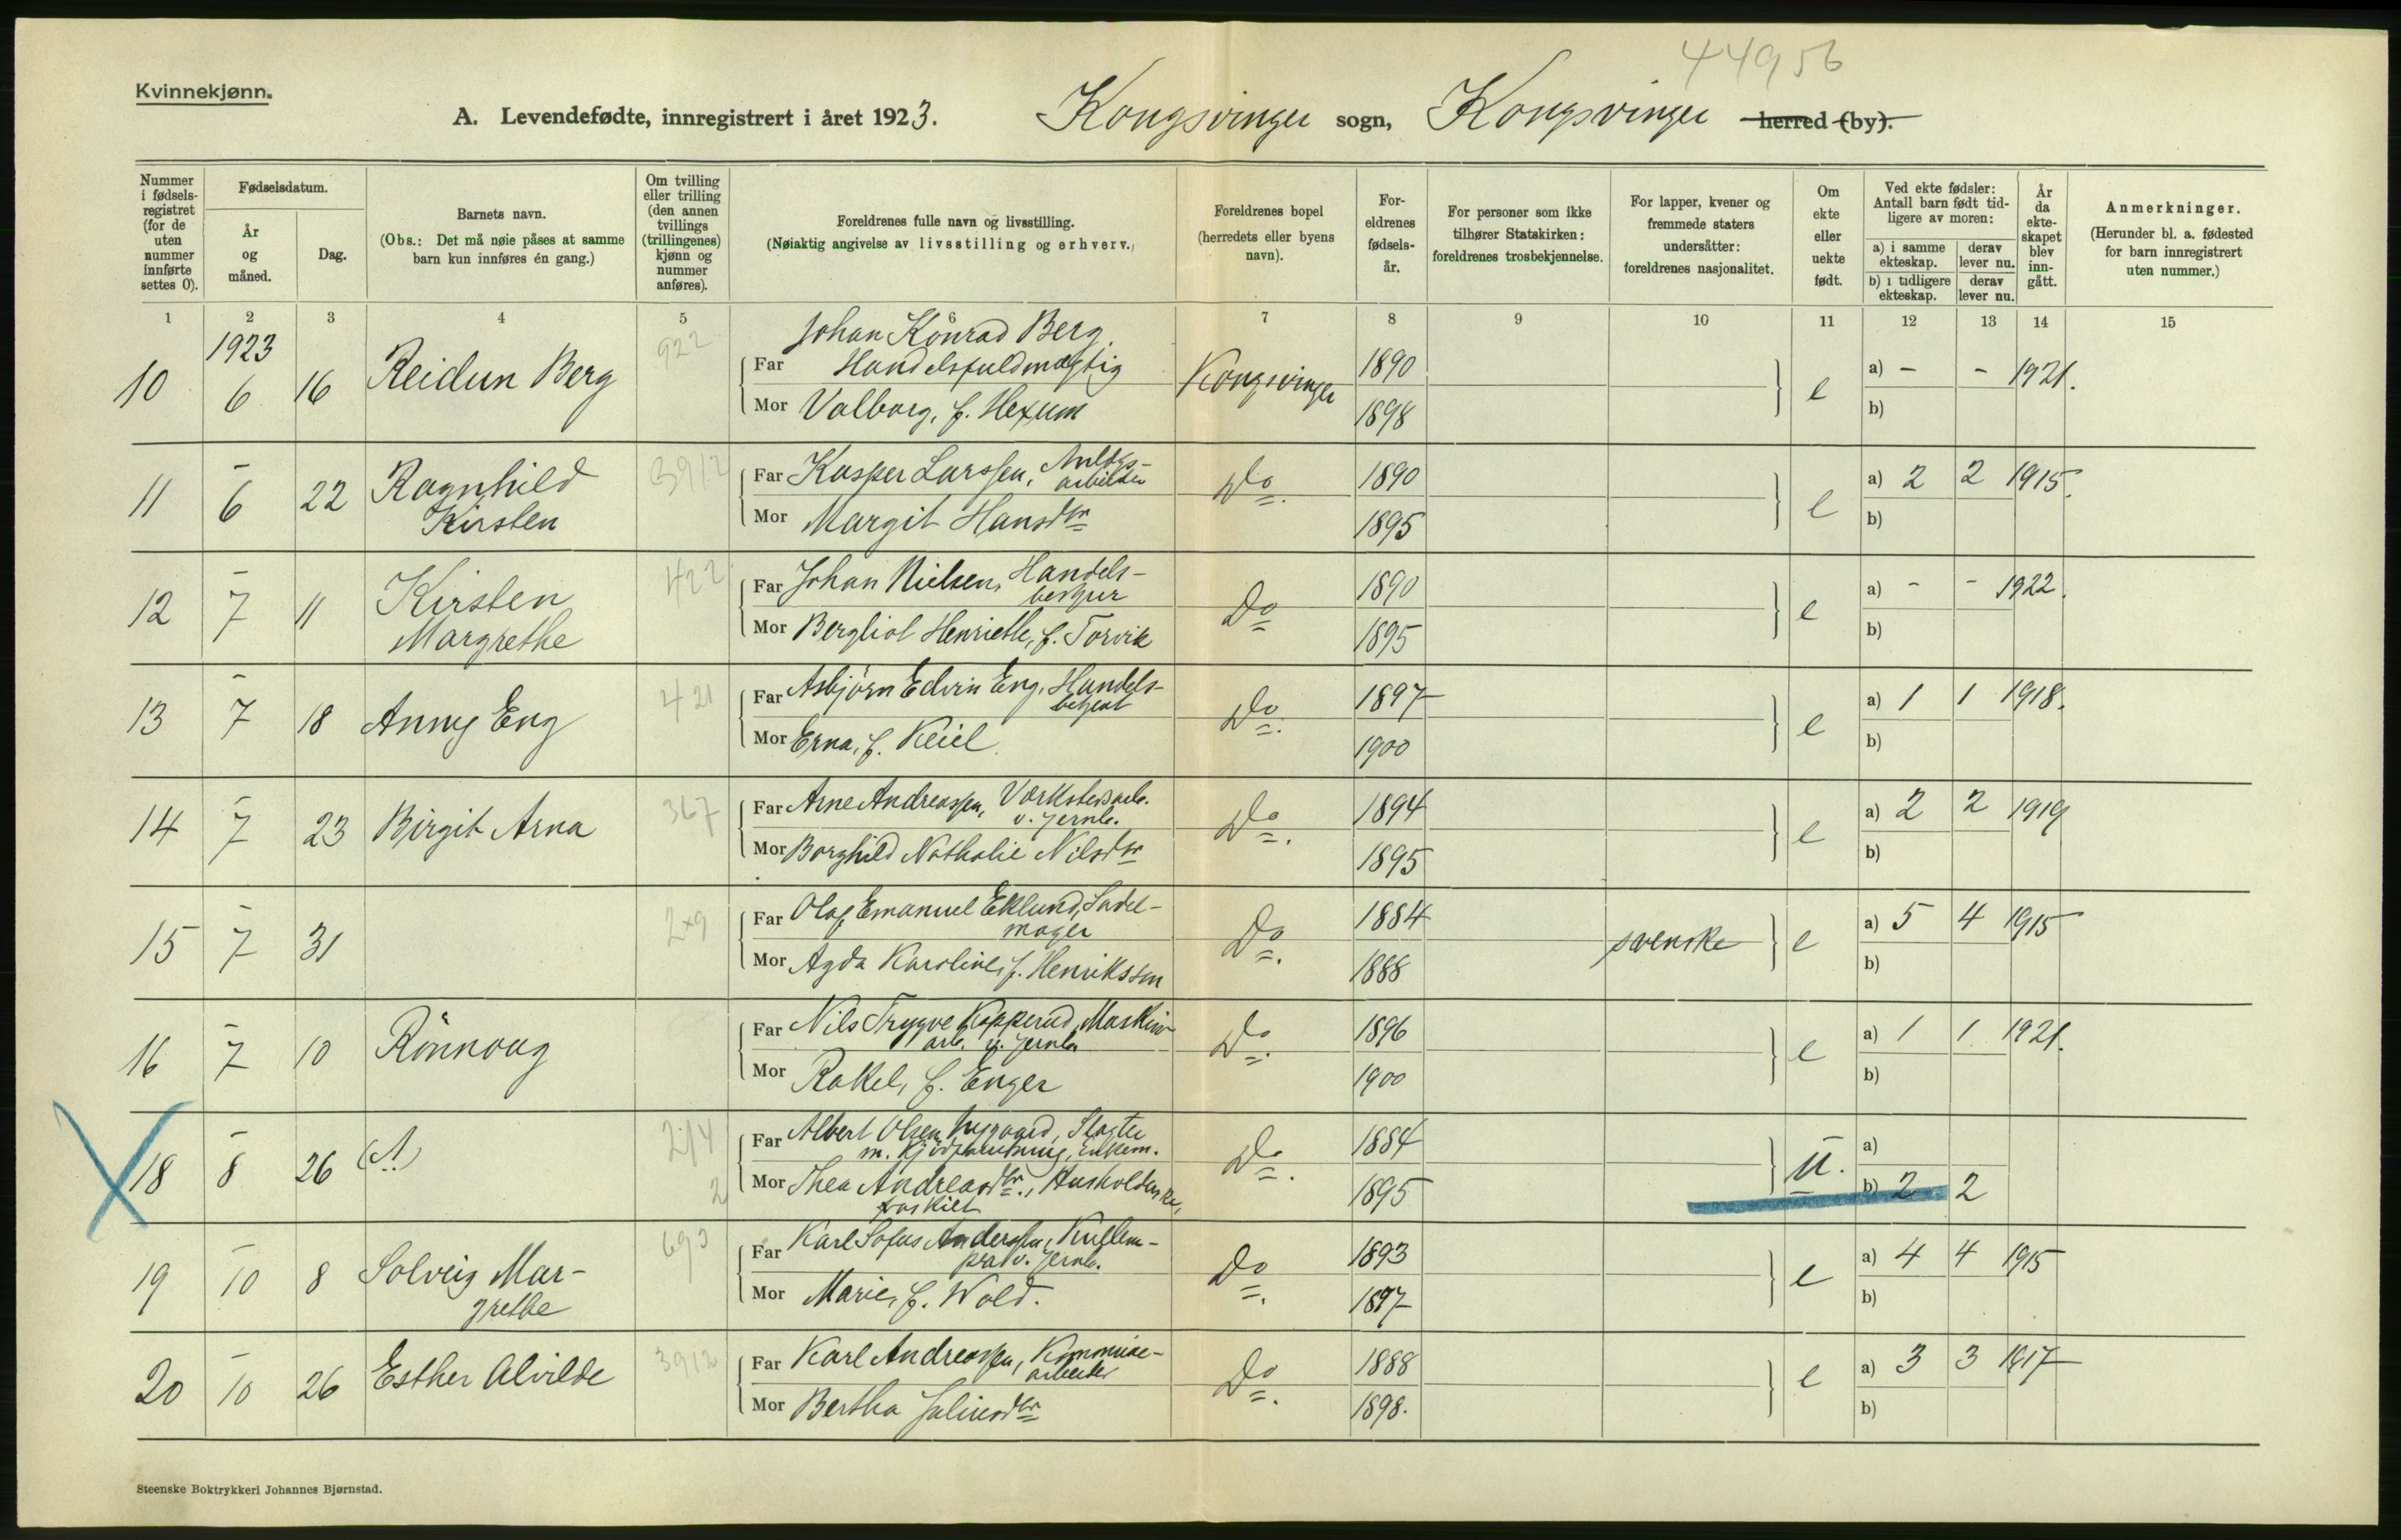 44956
Kvinnekjønn.
A. Levendefødte, innregistrert i året 1923. Kongsvinger sogn, Kongsvinger herred (by).
Nummer i fødselsregistret (for de uten nummer innførte settes 0).
Fødselsdatum.
År og måned.
Dag.
Barnets navn.
(Obs.: Det må nøie påses at samme barn kun innføres én gang.)
Om tvilling eller trilling (den annen tvillings (trillingenes) kjønn og nummer anføres).
Foreldrenes fulle navn og livsstilling.
(Nøiaktig angivelse av livsstilling og erhverv.)
Foreldrenes bopel (herredets eller byens navn).
Foreldrenes fødselsår.
For personer som ikke tilhører Statskirken: foreldrenes trosbekjennelse.
For lapper, kvener og fremmede staters undersåtter: foreldrenes nasjonalitet.
Om ekte eller uekte født.
Ved ekte fødsler: Antall barn født tidligere av moren:
a) i samme ekteskap. derav lever nu.
b) i tidligere ekteskap. derav lever nu.
År da ekteskapet blev inngått.
Anmerkninger.
(Herunder bl. a. fødested for barn innregistrert uten nummer.)
1 2 3 4 5 6 7 8 9 10 11 12 13 14 15
1923
10 6 16 Reidun Berg 922
Johan Konrad Berg
Far Handelsfuldmægtig Kongsvinger 1890 e a) - - 1921.
Mor Valborg, f. Hexum 1898 b)
11 - 6 22 Ragnhild Kirsten 3912
Far Kasper Larssen, Anlægsarbeider Do. 1890 e a) 2 2 1915.
Mor Margit Hansdtr 1895 b)
12 - 7 11 Kirsten Margrethe 422
Far Johan Nielsen, Handelsbestyrer Do 1890 e a) - - 1922.
Mor Bergliot Henriette, f. Torvik 1895 b)
13 - 7 18 Anny Eng 421
Far Asbjörn Edvin Eng, Handelsbetjent Do. 1897 e a) 1 1 1918.
Mor Erna, f. Keiel 1900 b)
14 - 7 23 Birgit Arna 367
Far Arne Andreassen, Værkstedsarb. v. jernb. Do. 1894 e a) 2 2 1919
Mor Borghild Nathalie Nilsdtr 1895 b)
15 - 7 31 2x9
Far Olaf Emanuel Eklund, Sadelmager Do. 1884 svenske e a) 5 4 1915
Mor Agda Karoline, f. Henriksson 1888 b)
16 - 7 10 Rönnoug
Far Nils Trygve Kopperud, Maskinarb. v. jernb. Do. 1896 e a) 1 1 1921.
Mor Rakel, f. Enger 1900 b)
18 - 8 26 (A) 214 2
Far Albert Olsen Nygaard, Slagter m. Kjödforretning, Enkem. Do. 1884 u. a)
Mor Thea Andreasdtr., Husholderske, fraskilt 1895 b) 2 2
19 - 10 8 Solveig Margrethe 693
Far Karl Sofus Anderssen, v. jernb. Do. 1893 e a) 4 4 1915
Mor Marie, f. Wold. 1897 b)
20 - 10 26 Esther Alvilde 3912
Far Karl Andreassen, Kommunearbeider Do. 1888 e a) 3 3 1917
Mor Bertha Juliusdtr 1898. b)
Steenske Boktrykkeri Johannes Bjørnstad.